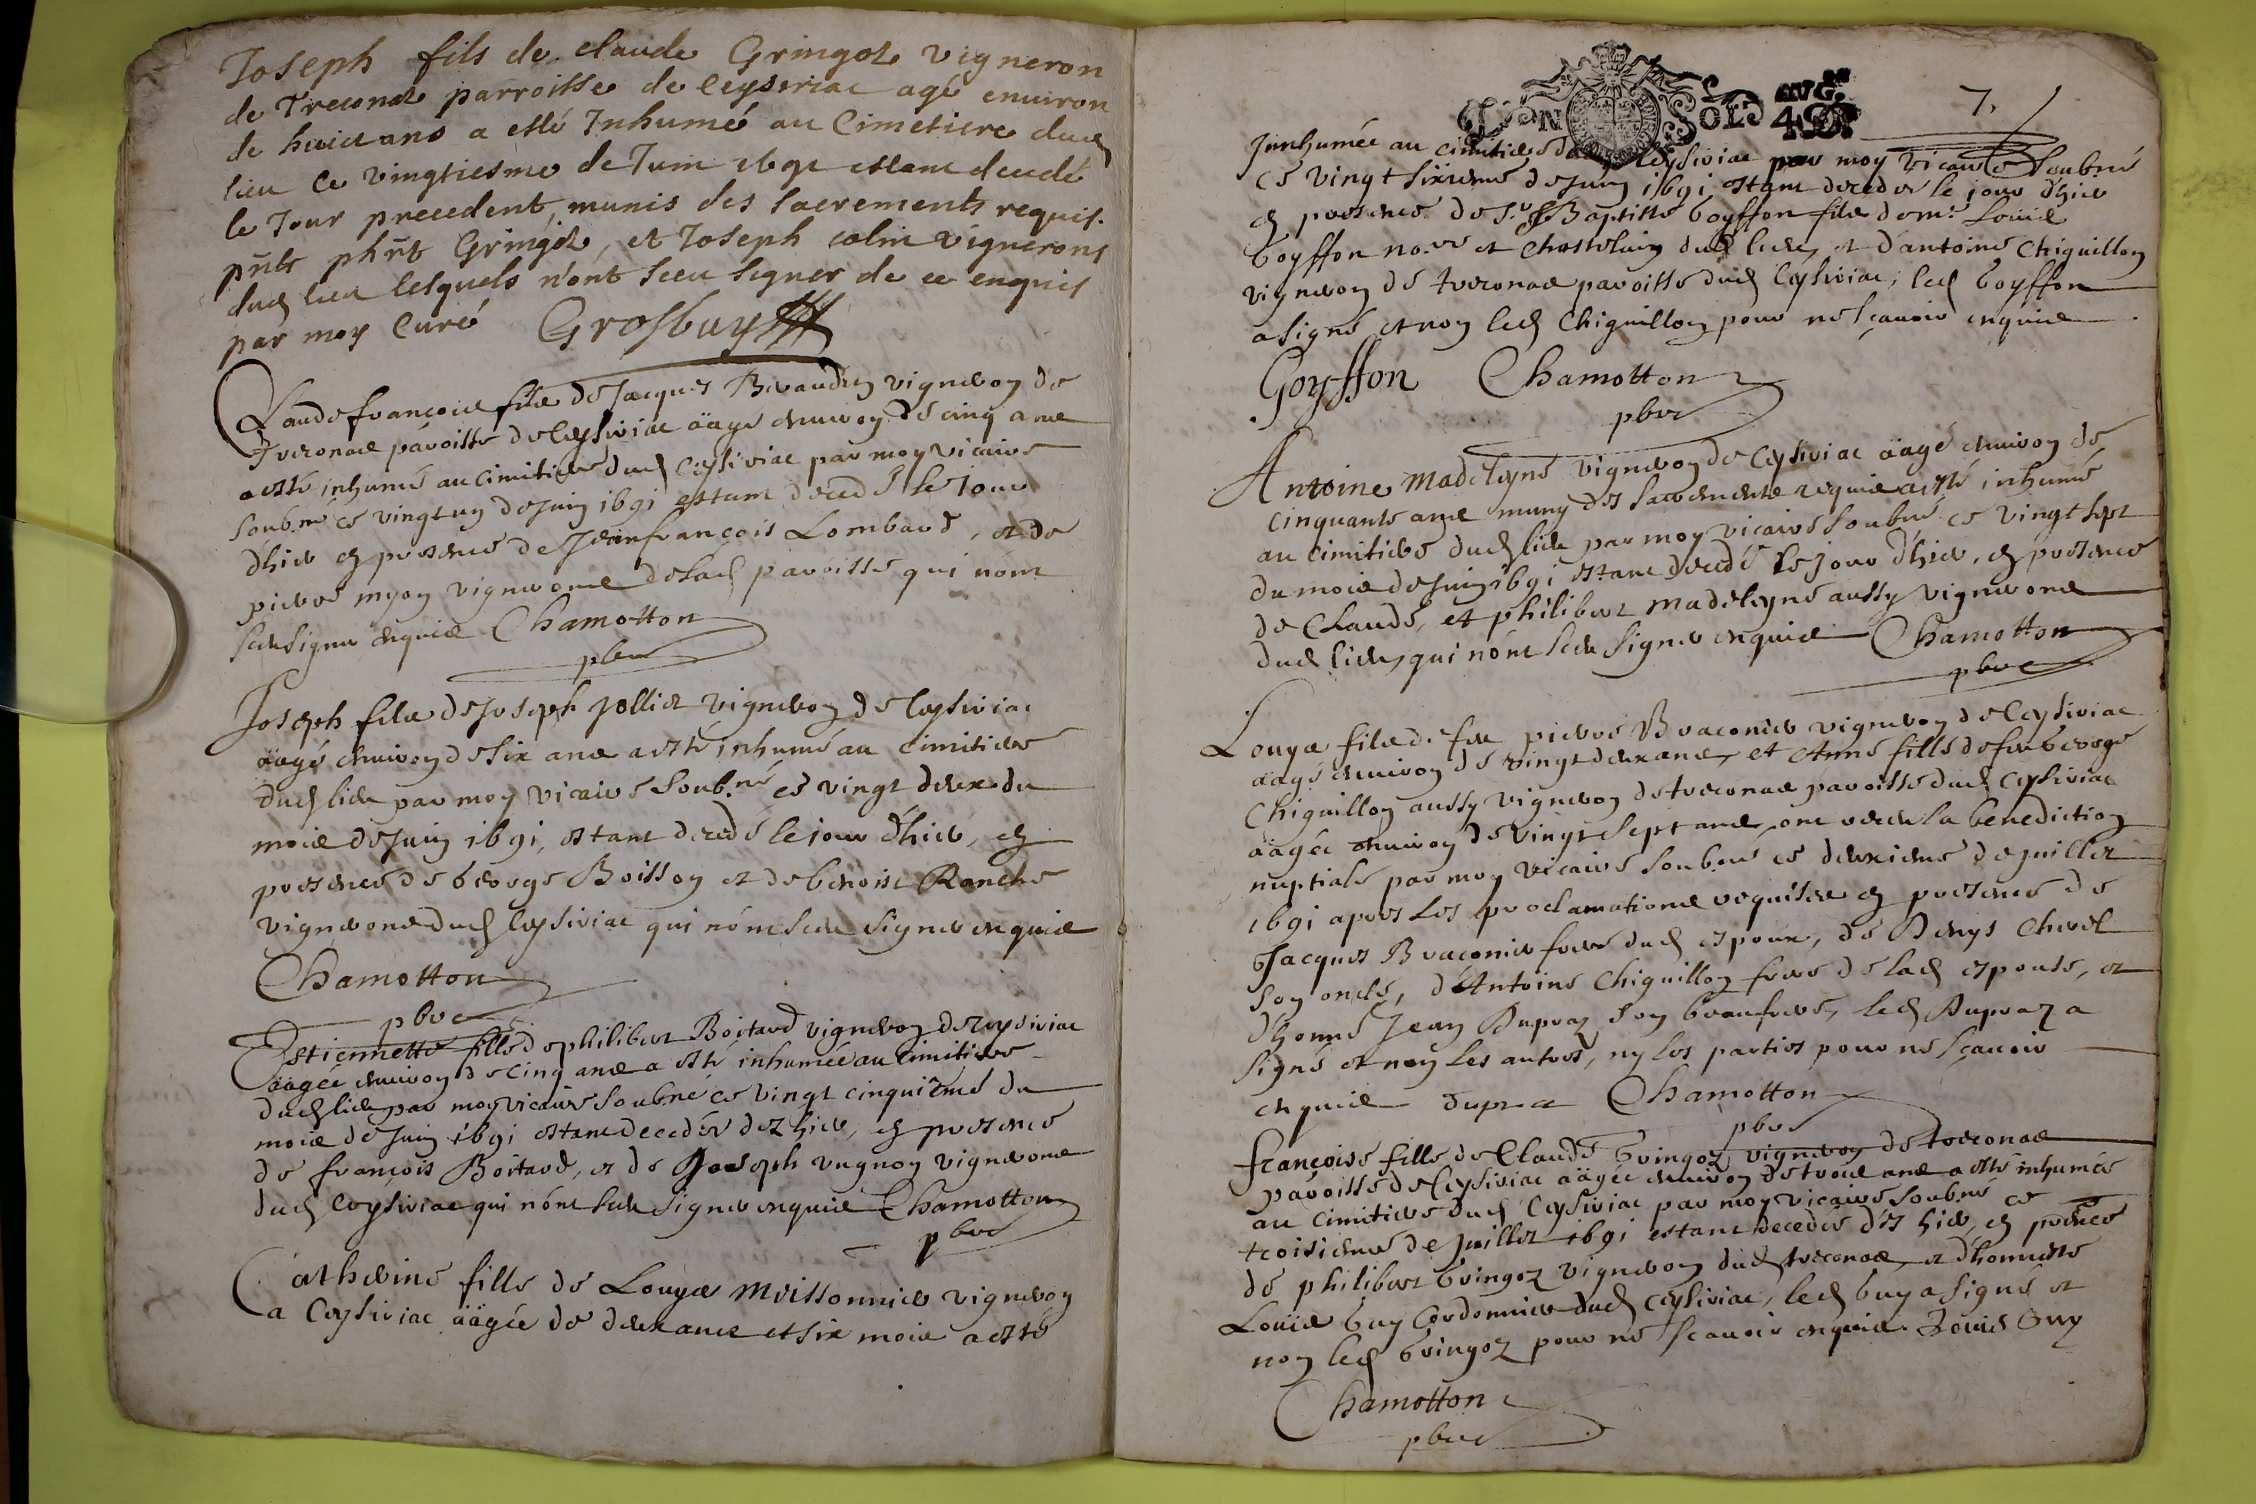 Joseph fils de claude Gringoz vigneron
de Treconaz parroisse de ceyseriac agé environ
de huict ans a esté Inhumé au Cimetiere dud
lieu ce vingtiesme de Juin 1691 estant decedé
le Jour precedent, munis des sacrements requis.
pnts phbt Gringoz, et Joseph colin vignerons
dud lieu lesquels n'ont sceu signer de ce enquis
par moy Curé Grosbuy
Claude françois filz de Jacques Bevaudey vigneron de
treconaz paroisse de Ceysiriac äagé environ de cinq ans
a esté inhumé au Cimitiere dud Ceysiriac par moy vicaire
soub.né ce vingt un de Juin 1691 estant decedé le jour
d'hier en presence de Jean françois Lombard, et de
pierre myon vignerons de lad paroisse qui n'ont
sceu signer enquis Chamotton
pbre
Joseph filz de Joseph Jolliet vigneron de Ceysiriac
äagé environ de six ans a esté inhumé au Cimitiere
dud lieu par moy vicaire soub.né ce vingt deux du
mois de Juin 1691, estant decedé le jour d'hier, en
presence de George Boisson et de benoist Ranche
vignerons dud Ceysiriac qui n'ont sceu signer enquis
Chamotton
pbre
Estiennette fille de philibert Boitard vigneron de Ceysiriac
äagée environ de cinq ans a esté inhumée au Cimitiere
dud lieu par moy vicaire soubné ce vingt cinquième du
mois de Juin 1691 estant decedée dez hier, en presence
de françois Boitard, et de Joseph vugnon vignerons
dud Ceysiriac qui n'ont sceu signer enquis Chamotton
pbre
Catherine fille de Louys Moissonnier vigneron
a Ceysiriac äagée de deux ans et six mois a esté
7.
Innhumée au Cimitiere dud Ceysiriac par moy vicaire soubné
ce vingt sixieme de Juin 1691 estant decedée le jour d'hier
en presence de Sr JBaptiste Goyffon filz de mr. Loüis
Goyffon no.re et Chastelain dud lieu, et d'antoine Chiguillon
vigneron de treconaz paroisse dud Ceysiriac; led Goyffon
a signé et non led Chiguillon pour ne sçavoir enquis
Goyffon Chamotton
pbre
Antoine Madeleyne vigneron de Ceysiriac äagé environ de
cinquante ans muny des sacrements requis a esté inhumé
au Cimitiere dud lieu par moy vicaire soubné ce vingt sept
du mois de Juin 1691 estant decedé le jour d'hier, en presence
de Claude, et philibert Madeleyne aussy vignerons
dud lieu, qui n'ont sceu signer enquis Chamotton
pbre
Louys filz de feu pierre Braconier vigneron de Ceysiriac
äagé environ de vingt deux ans, et Anne fille de feu George
Chiguillon aussy vigneron de treconaz paroisse dud Ceysiriac
äagée environ de vingt sept ans, ont receu la benediction
nuptiale par moy vicaire soub.né ce deuxieme de Juillet
1691 apres les proclamations requises en presence de
Jacques Braconier frere dud espoux, de Denys Chevel
son oncle, d'Antoine Chiguillon frere de lad espouse, et
d'honne Jean Dupraz son beaufrere, led Dupraz a
signé et non les autres, ny les parties pour ne sçavoir
enquis dupra Chamotton
pbre
françoise fille de Claude Gringoz vigneron de treconaz
paroisse de Ceysiriac äagée environ de trois ans a esté inhumée
au Cimitiere dud Ceysiriac par moy vicaire soubné ce
troisieme de Juillet 1691 estant decedée d'ez hier, en pñce
de philibert Gringoz vigneron dud treconaz, et d'honneste
Loüis Guy Cordonnier dud Ceysiriac, led Guy a signé et
non led Gringoz pour ne scavoir enquis. Louis Guy
Chamotton
pbre